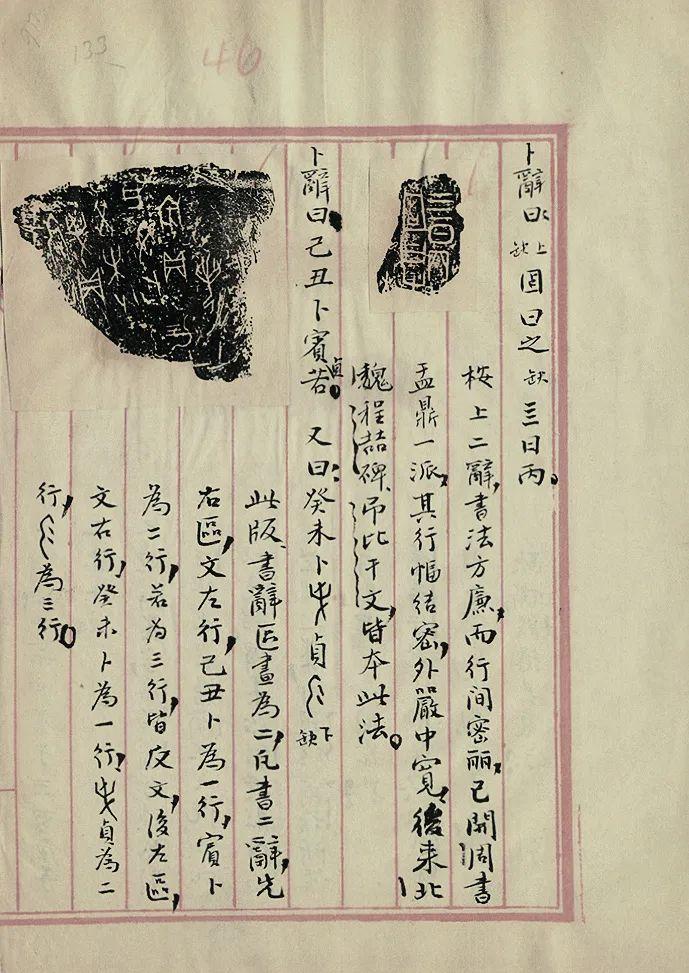 133
46
卜辭曰:上缺固曰之缺三日丙。
按上二辭,書法方廉,而行間密麗,已開周書
盂鼎一派,其行幅結密,外嚴中寬,後来北
魏程喆碑、吊比干文,皆本此法。
卜辭曰,己丑卜賓貞若。又曰:癸未卜貞〻下缺
此版書辭区畫為二,凡書二辭,先
右區,文左行,己丑卜為一行,賓卜
為二行,若為三行,皆反文,後左區,
文右行,癸未卜為一行,貞為二
行,〻為三行。